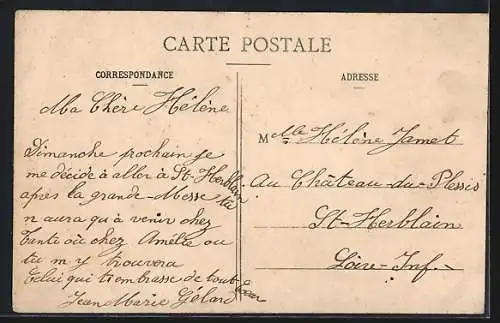 CARTE POSTALE
CORRESPONDANCE
Ma Chère Hélène
Dimanche prochain je
me décide à aller à St-Herblain
après la grande-Messe tu
n aura qu à venir chez
Tante où chez Amélie ou
tu m y trouvera
Celui qui t embrasse de tout
cœur
Jean Marie Gélard
ADRESSE
M Mlle Hélène Jamet
Au Château-du-Plessis
St-Herblain
Loire-Inf.